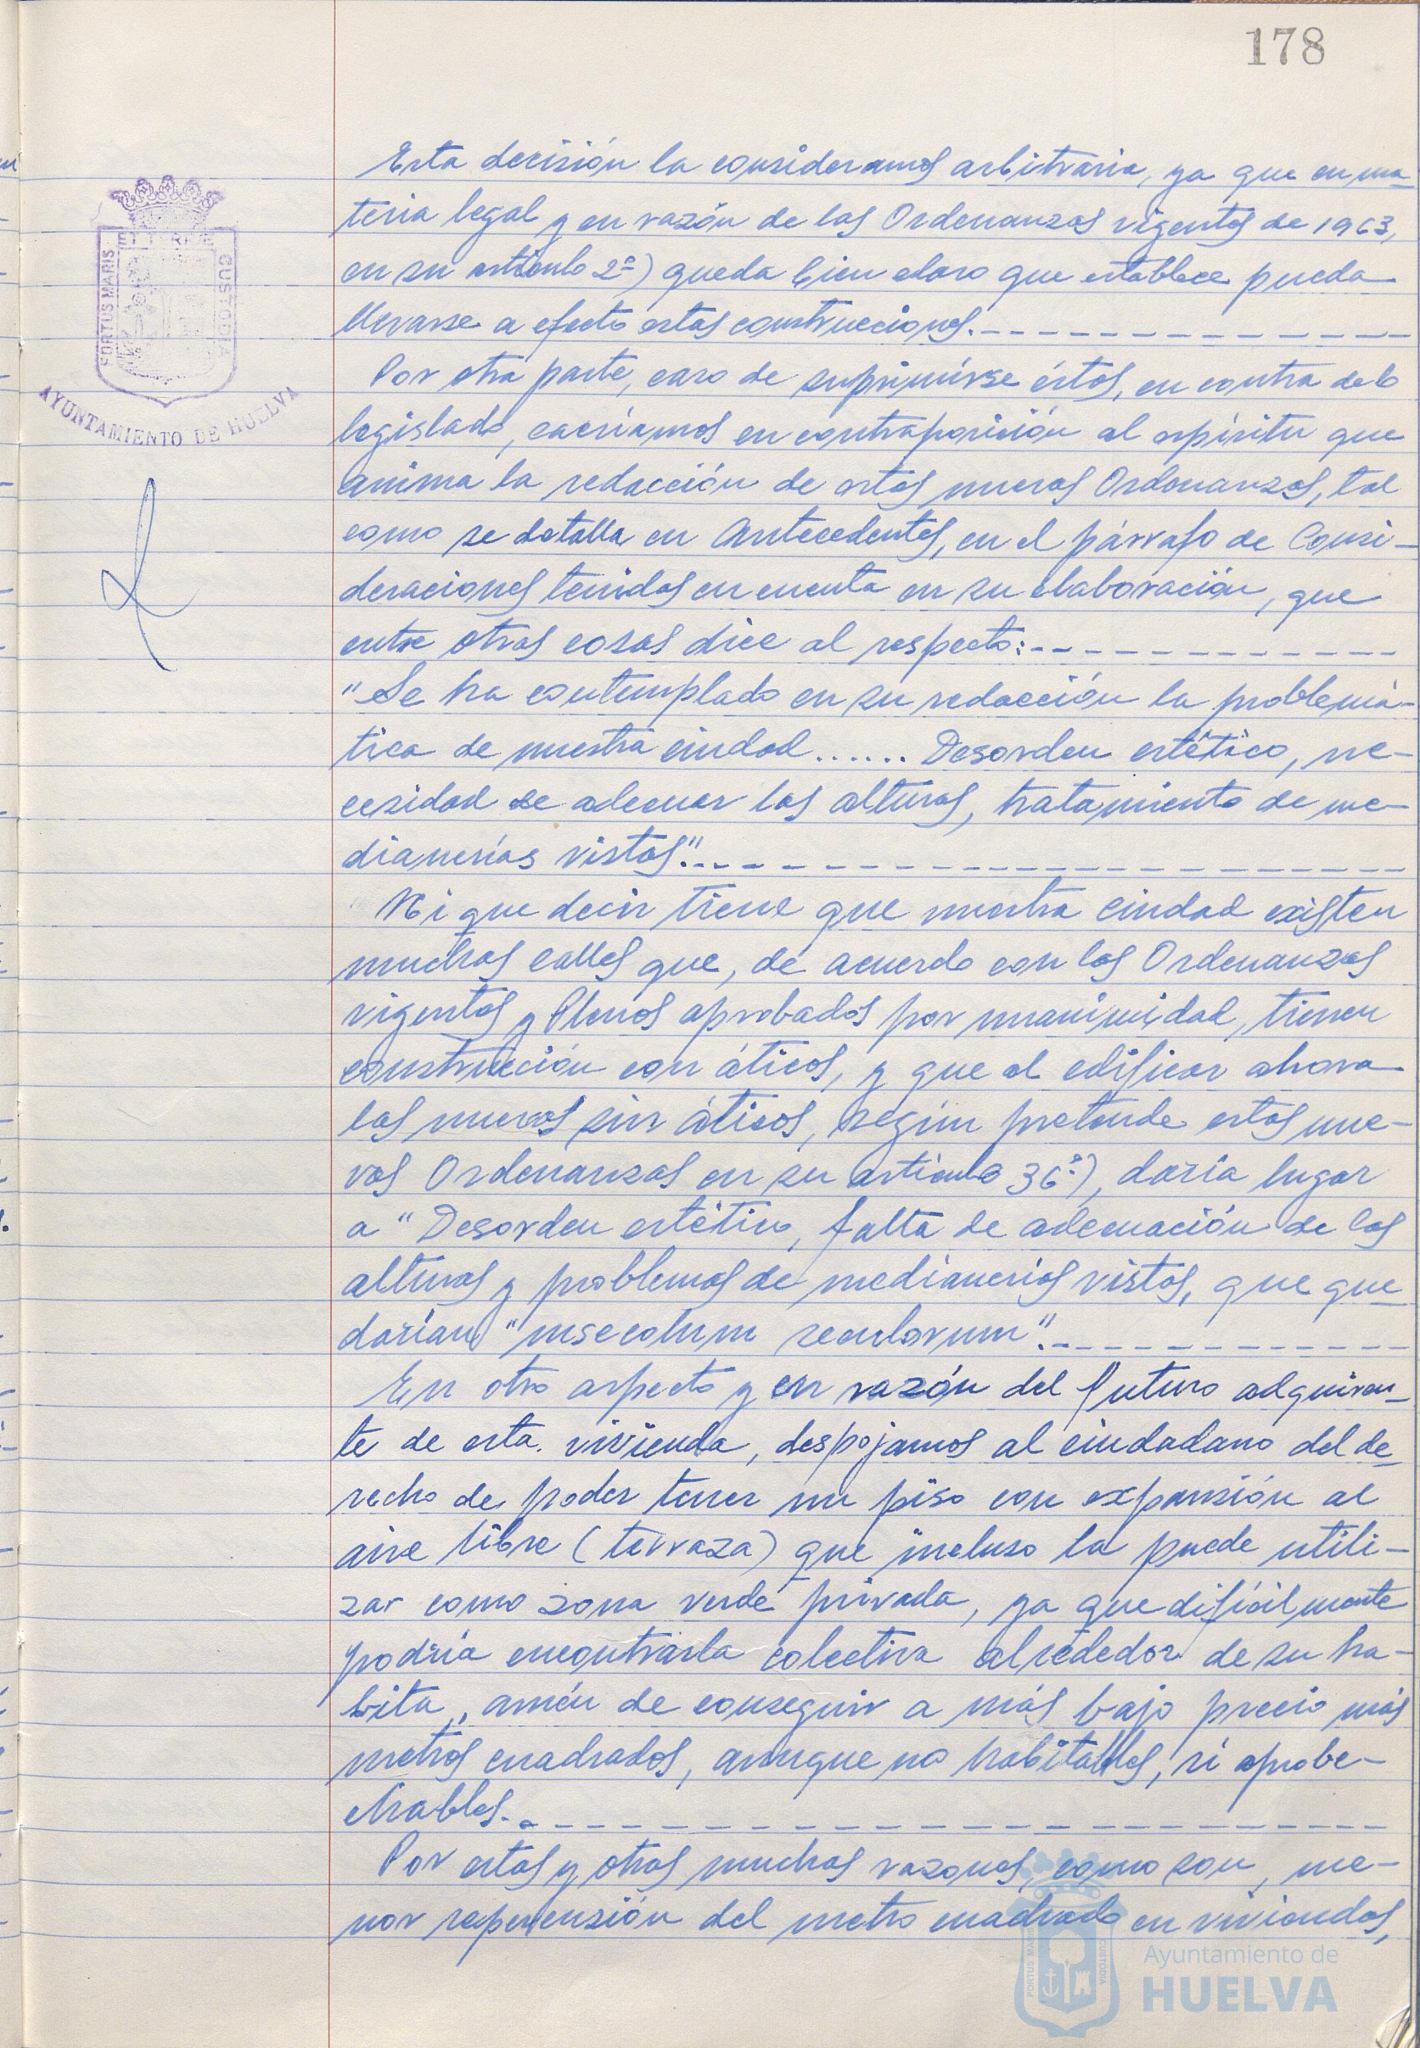 178
PORTUS MARIS
ET TERRAE
CUSTODIA
AYUNTAMIENTO DE HUELVA
Esta decisión la consideramos arbitraria, ya que en ma-
teria legal y en razón de las Ordenanzas vigentes de 1963,
en su artículo 2º) queda bien claro que establece pueda
llevarse a efecto estas construcciones.
Por otra parte, caso de suprimirse éstos, en contra de lo
legislado, caeríamos en contraposición al espíritu que
anima la redacción de estas nuevas Ordenanzas, tal
como se detalla en Antecedentes, en el párrafo de Consi-
deraciones tenidas en cuenta en su elaboración, que
entre otras cosas dice al respecto:
"Se ha contemplado en su redacción la problemá-
tica de nuestra ciudad...... Desorden estético, ne-
cesidad de adecuar las alturas, tratamiento de me-
dianerías vistas".
Ni que decir tiene que nuestra ciudad existen
muchas calles que, de acuerdo con las Ordenanzas
vigentes y Plenos aprobados por unanimidad, tienen
construcción con áticos, y que al edificar ahora
las nuevas sin áticos, según pretende estas nue-
vas Ordenanzas en su artículo 36º), daría lugar
a "Desorden estético, falta de adecuación de las
alturas y problemas de medianerías vistas, que que-
darían "insecolum secularum".
En otro aspecto y en razón del futuro adquiren-
te de esta vivienda, despojamos al ciudadano del de-
recho de poder tener un piso con expansión al
aire libre (terraza) que incluso la puede utili-
zar como zona verde privada, ya que difícilmente
podría encontrarla colectiva alrededor de su ha-
bita, amén de conseguir a más bajo precio más
metros cuadrados, aunque no habitables, si aprobe-
chables.
Por estas y otras muchas razones, como son, me-
nor repercusión del metro cuadrado en viviendas,
PORTUS MARIS
CUSTODIA
Ayuntamiento de
HUELVA